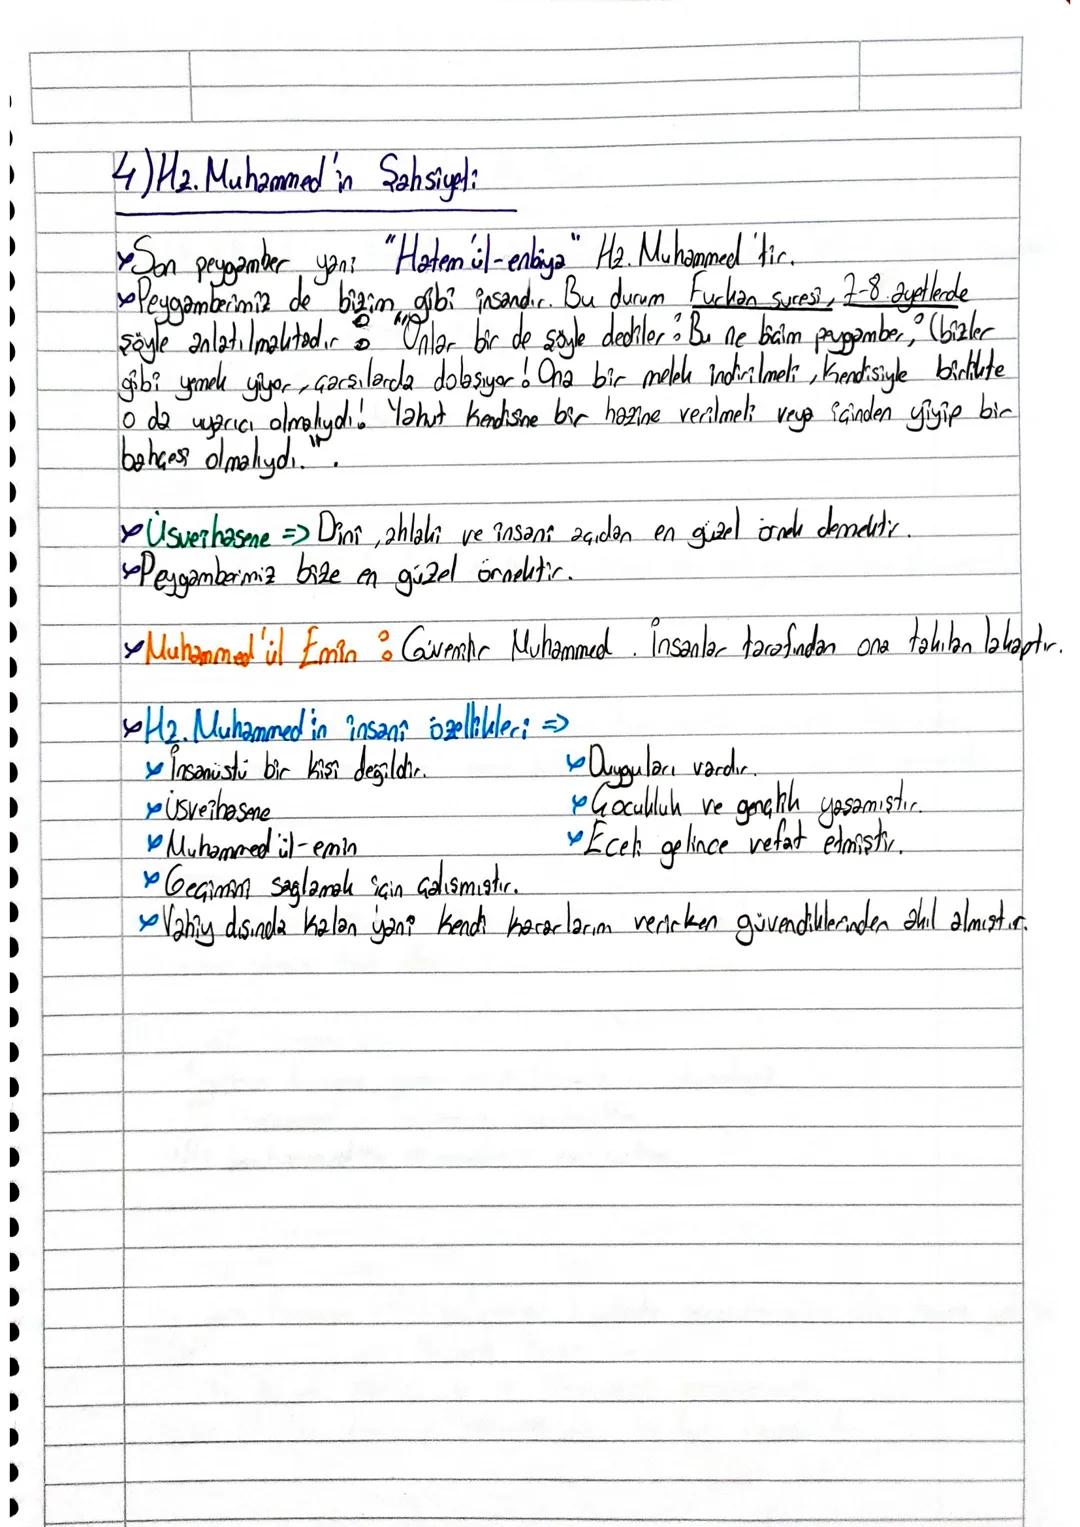 4) Hz. Muhammed'in Şahsiyeti:
Son peygamber yani "Hatem'ül-enbiya" Hz. Muhammed'tir.
Peygamberimiz de bizim gibi insandır. Bu durum Furkan suresi, 7-8. ayetlerde
şöyle anlatılmaktadır: "Onlar bir de şöyle dediler: Bu ne biçim peygamber, (bizler
gibi yemek yiyor, çarşılarda dolaşıyor! Ona bir melek indirilmeli, kendisiyle birlikte
o da uyarıcı olmalıydı! Yahut kendisine bir hazine verilmeli veya içinden yiyip bir
bahçesi olmalıydı.".
Üsveihasene => Dinî, ahlaki ve insanî açıdan en güzel örnek demektir.
Peygamberimiz bize en güzel örnektir.
Muhammed'ül Emin: Güvenilir Muhammed. İnsanlar tarafından ona takılan lakaptır.
Hz. Muhammed'in insanî özellikleri =>
İnsanüstü bir kişi değildir.
Üsveihasene
Muhammed'ül-emin
Geçimini sağlamak için çalışmıştır.
Vahiy dışında kalan yani kendi kararlarını verirken güvendiklerinden akıl almıştır.
Duyguları vardır.
Çocukluk ve gençlik yaşamıştır.
Eceli gelince vefat etmiştir.